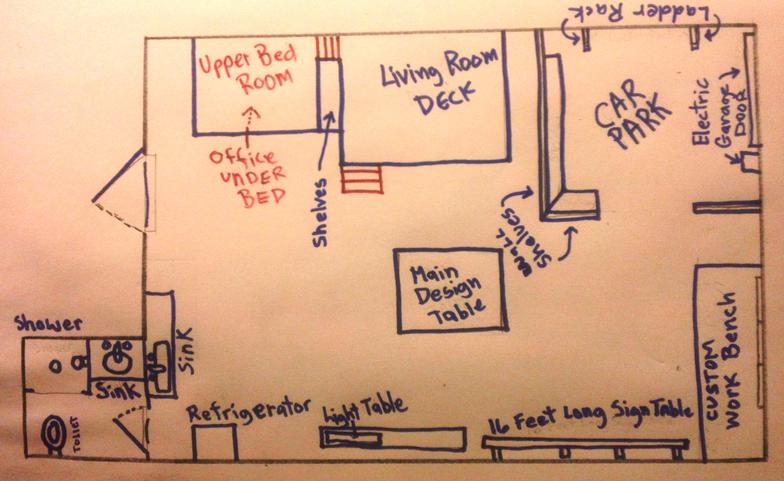 Ladder Rack
Upper Bed
Room
Living Room
Deck
CAR
PARK
Electric
Garage
Door
Office
UNDER
BED
Shelves
Wall
Shelves
Main
Design
Table
Shower
Sink
Sink
Toilet
Refrigerator
Light Table
16 Feet Long Sign Table
Custom
Work Bench